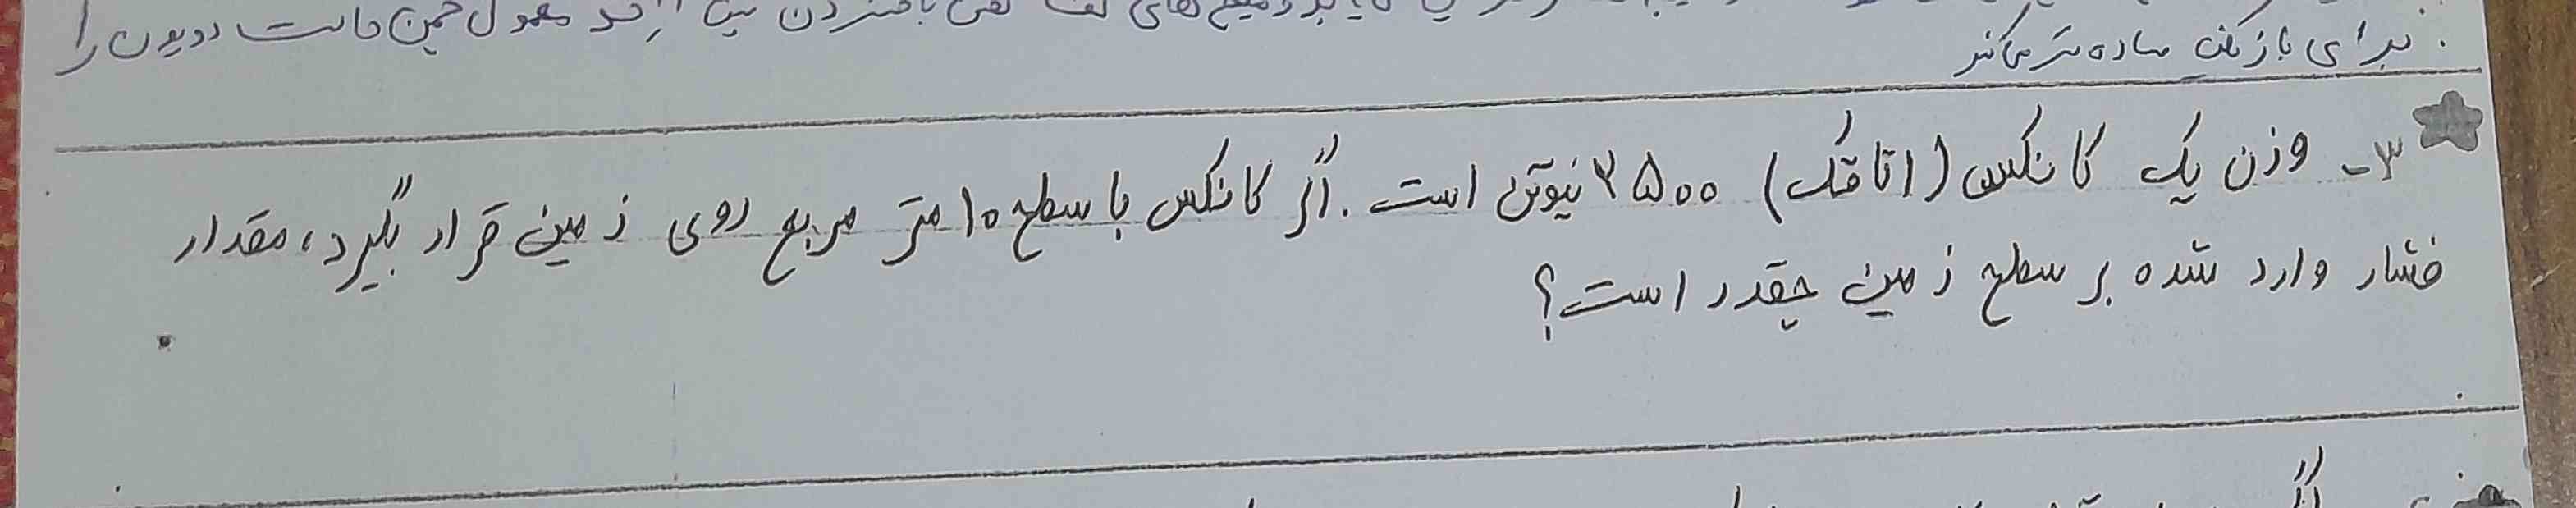 معمول خمین حالت را
برای بازکن ساده‌تر می‌کند.
۳- وزن یک کانکس (اتاقک) ۲۵۰۰ نیوتن است. اگر کانکس با سطح ۱۰ متر مربع روی زمین قرار بگیرد، مقدار
فشار وارد شده بر سطح زمین چقدر است؟